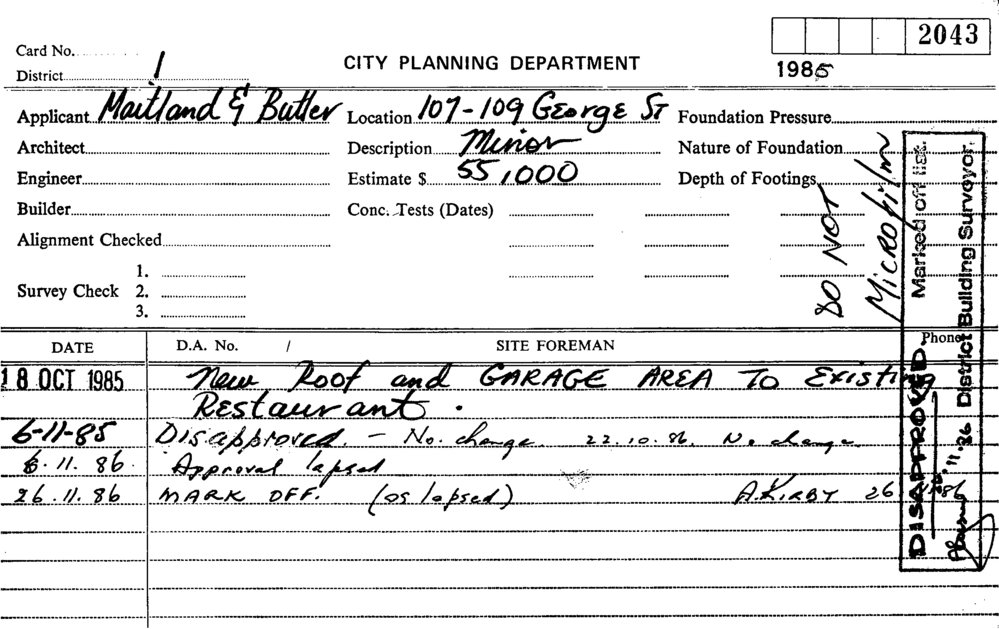 2043
Card No.
1985
District 1
CITY PLANNING DEPARTMENT
Applicant Maitland & Butler Location 107-109 George St Foundation Pressure
Architect Description Minor Nature of Foundation
Engineer Estimate $ 55,000 Depth of Footings
Builder Conc. Tests (Dates)
Alignment Checked
1.
Survey Check 2.
3.
DO NOT
MICROFILM
DISAPPROVED. Marked off list.
District Building Surveyor.
DATE D.A. No. / SITE FOREMAN Phone
18 OCT 1985 New Roof and GARAGE AREA To Existing
Restaurant.
6-11-85 Disapproved. - No. change 22.10.86. No change
6.11.86. Approval lapsed
26.11.86 MARK OFF. (as lapsed) A.KIRBY 26 86